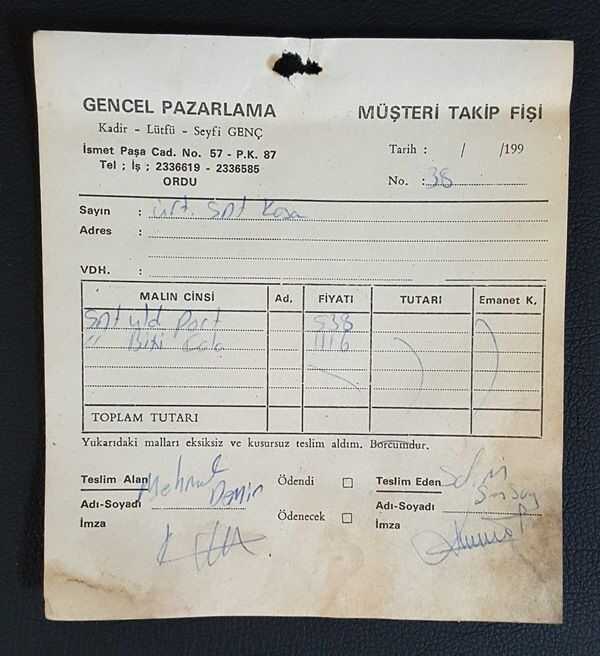 GENCEL PAZARLAMA
Kadir - Lütfü - Seyfi GENÇ
İsmet Paşa Cad. No. 57 - P.K. 87
Tel ; İş ; 2336619 - 2336585
ORDU
MÜŞTERİ TAKİP FİŞİ
Tarih : / /199
No. : 38
Sayın :
Adres :
VDH. :
MALIN CİNSİ Ad. FİYATI TUTARI Emanet K.
538
1116
TOPLAM TUTARI
Yukarıdaki malları eksiksiz ve kusursuz teslim aldım. Borcumdur.
Teslim Alan Mehmet
Adı-Soyadı Demir
İmza
Ödendi
Ödenecek
Teslim Eden
Adı-Soyadı
İmza